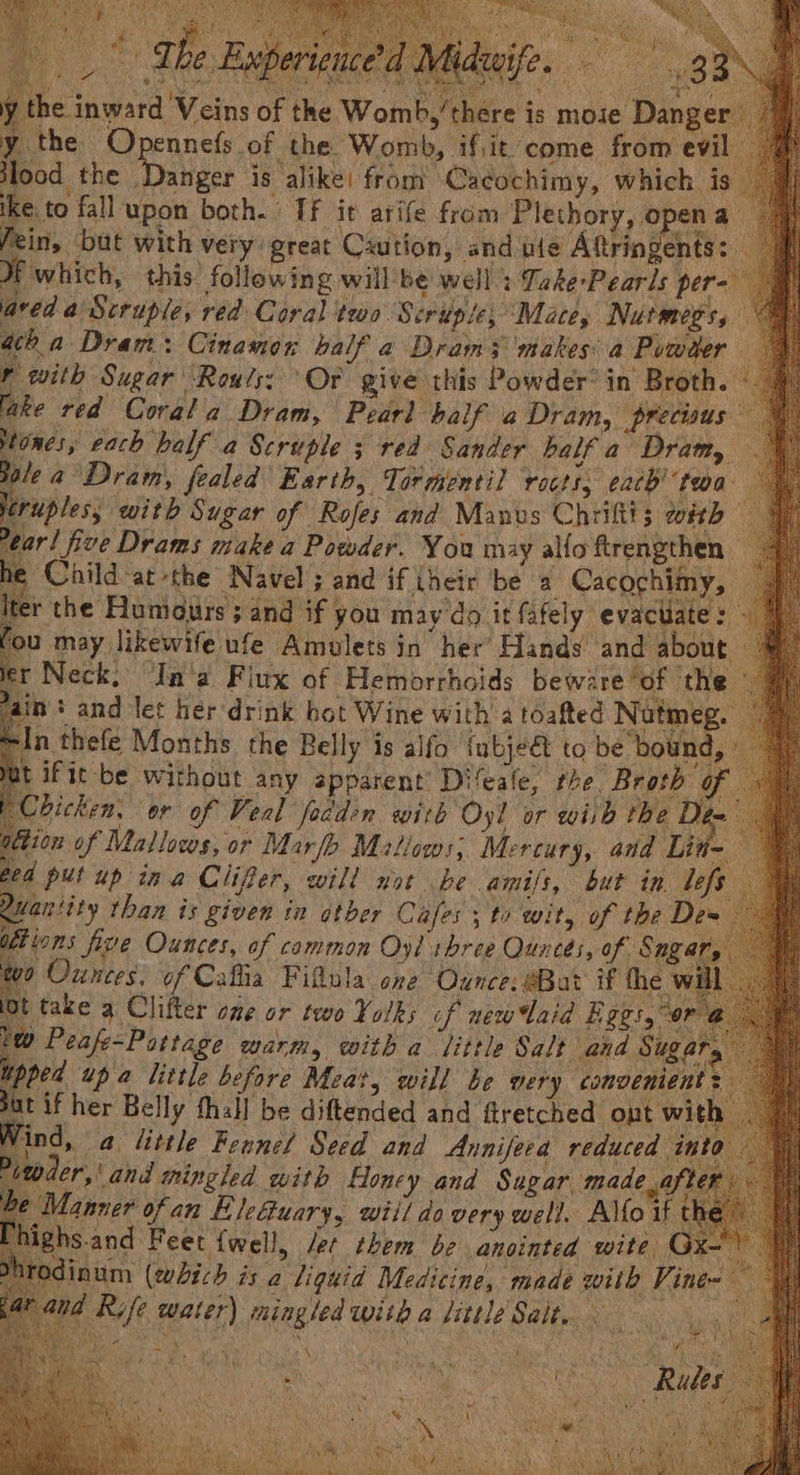 The Experienc'd Midwife. 33
y the inward Veins of the Womb, there is more Danger
y the Opennefs of the Womb, if it come from evil
lood the Danger is alike; from Cacochimy, which is
ike to fall upon both. If it arife from Plethory, open a
Vein, but with very great Caution, and ufe Aftringents:
Of which, this following will be well: Take Pearls per-
ared a Scruple, red Coral two Scruple, Mace, Nutmegs,
ach a Dram: Cinamon half a Dram; makes a Powder
r with Sugar Rouls: Or give this Powder in Broth.
ake red Coral a Dram, Pearl half a Dram, precious
tones, each half a Scruple; red Sander half a Dram,
Bole a Dram, fealed Earth, Tormentil roots, each two
cruples, with Sugar of Rofes and Manus Chrifti; with
Pearl five Drams make a Powder. You may alfo ftrengthen
he Child at the Navel; and if their be a Cacochimy,
lter the Humours; and if you may do it fafely evacuate:
You may likewife ufe Amulets in her Hands and about
er Neck. In a Flux of Hemorrhoids beware of the
Pain: and let her drink hot Wine with a toafted Nutmeg.
In thefe Months the Belly is alfo fubject to be bound,
ut if it be without any apparent Difeafe, the Broth of
Chicken, or of Veal fodden with Oyl or with the De-
oction of Mallows, or Marfh Mallows, Mercury, and Lin-
eed put up in a Clifter, will not be amifs, but in lefs
Quantity than is given in other Cafes; to wit, of the De-
octions five Ounces, of common Oyl three Ounces, of Sugar,
two Ounces, of Caffia Fiftula one Ounce. But if fhe will
ot take a Clifter one or two Yolks of new laid Eggs, or a
ew Peafe-Pottage warm, with a little Salt and Sugar,
upped up a little before Meat, will be very convenient:
But if her Belly fhall be diftended and ftretched out with
Wind, a little Fennel Seed and Annifeed reduced into
Powder, and mingled with Honey and Sugar made after
he Manner of an Electuary, will do very well. Alfo if the
Thighs and Feet fwell, let them be anointed wite Ox-
phrodinum (which is a liquid Medicine, made with Vine-
gar and Rofe water) mingled with a little Salt.
Rules